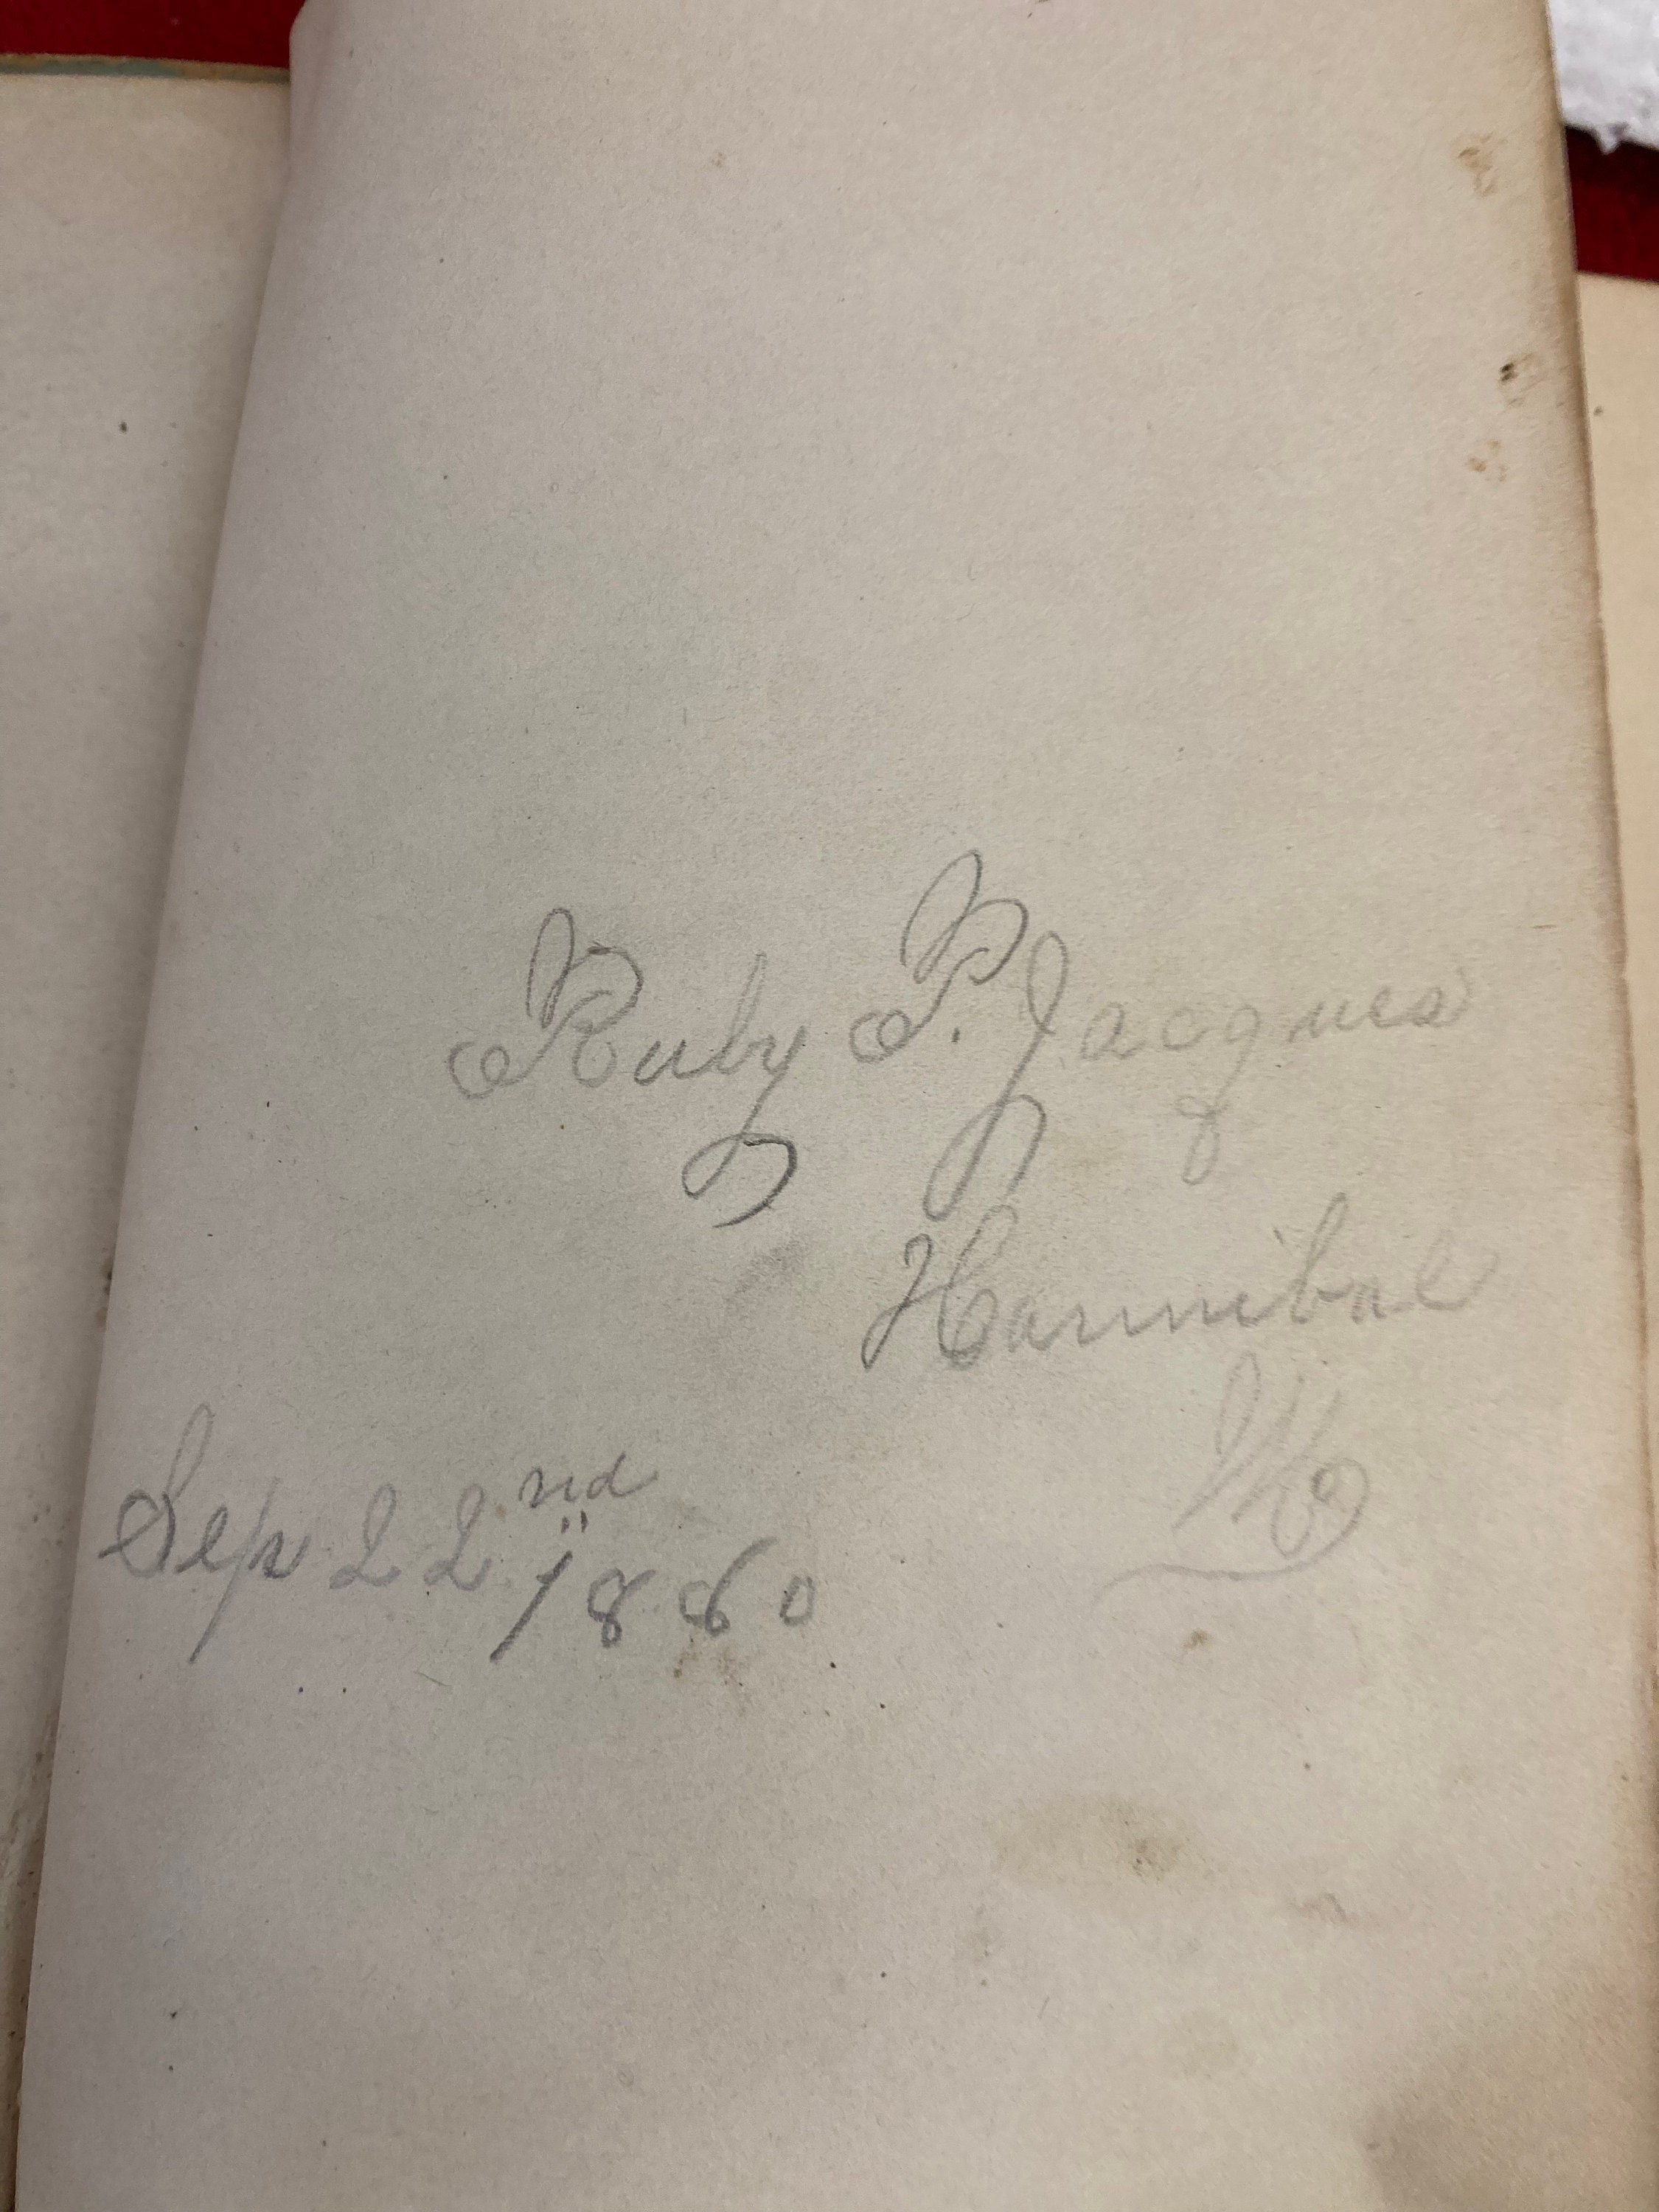 Ruby P. Jacques
Hannibal
Mo
Sep 22nd 1880